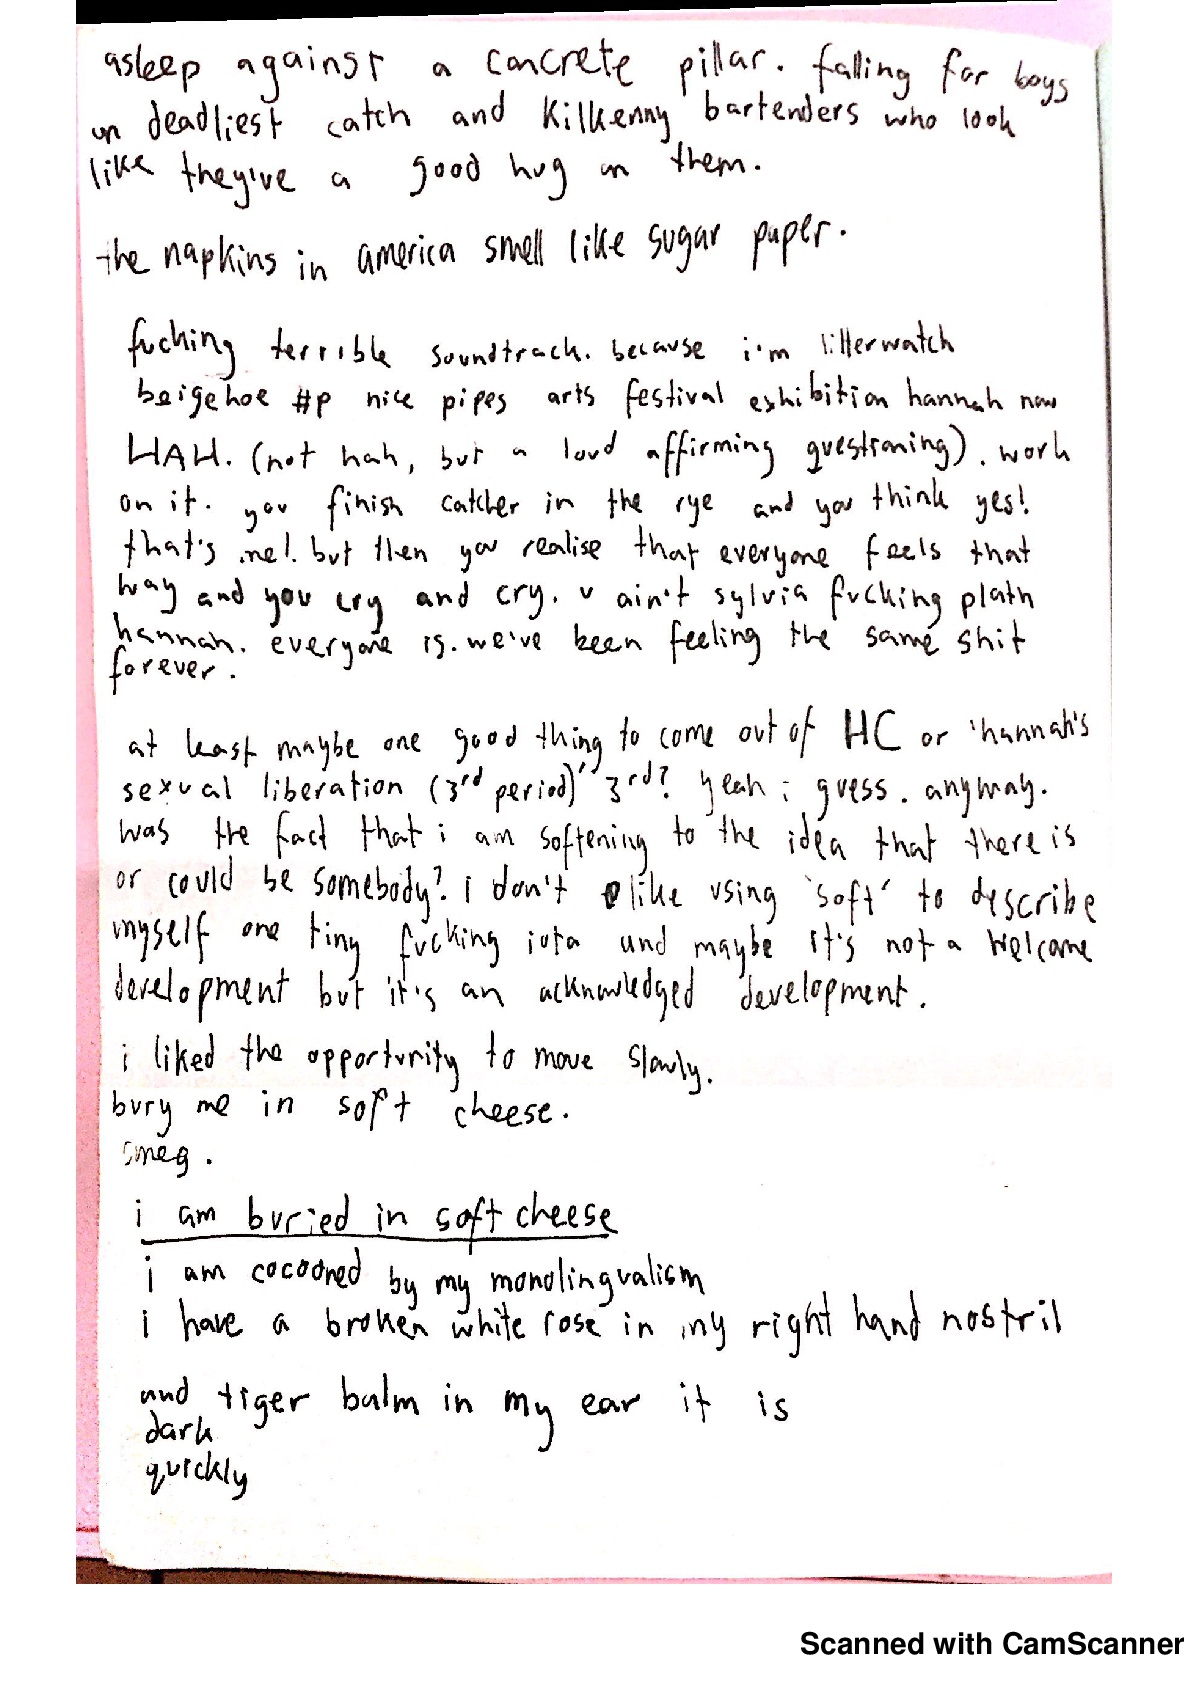 asleep against a concrete pillar. falling for boys
on deadliest catch and Kilkenny bartenders who look
like they've a good hug on them.
the napkins in america smell like sugar paper.
fucking terrible soundtrack. because i'm litterwatch
beigehoe #p nice pipes arts festival exhibition hannah now
HAH. (not hah, but a loud affirming questioning). work
on it. you finish catcher in the rye and you think yes!
that's me! but then you realise that everyone feels that
way and you cry and cry. u ain't sylvia fucking plath
hannah. everyone is. we've been feeling the same shit
forever.
at least maybe one good thing to come out of HC or 'hannah's
sexual liberation (3rd period)' 3rd? yeah i guess. anyway.
was the fact that i am softening to the idea that there is
or could be somebody? i don't like using 'soft' to describe
myself one tiny fucking iota and maybe it's not a welcome
development but it's an acknowledged development.
i liked the opportunity to move slowly.
bury me in soft cheese.
smeg.
i am buried in soft cheese
i am cocooned by my monolingualism
i have a broken white rose in my right hand nostril
and tiger balm in my ear it is
dark
quickly
Scanned with CamScanner